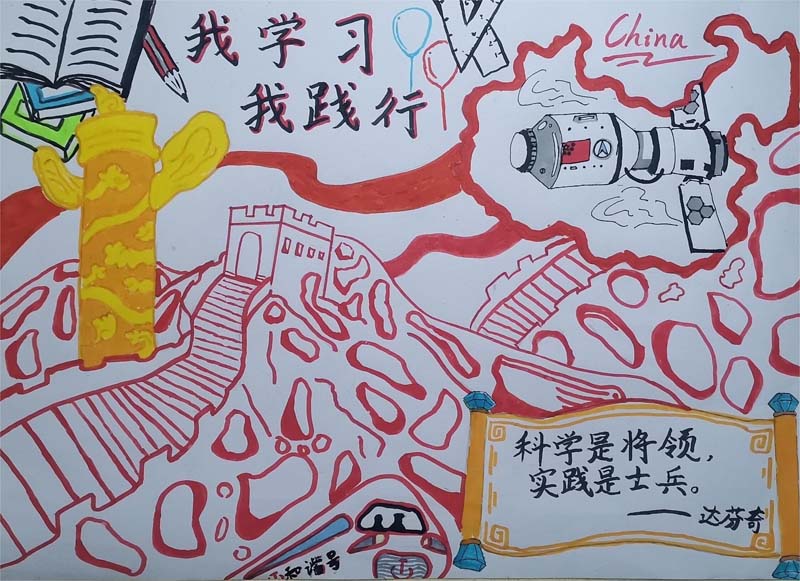 我学习
我践行
China
科学是将领，
实践是士兵。
——达芬奇
和谐号